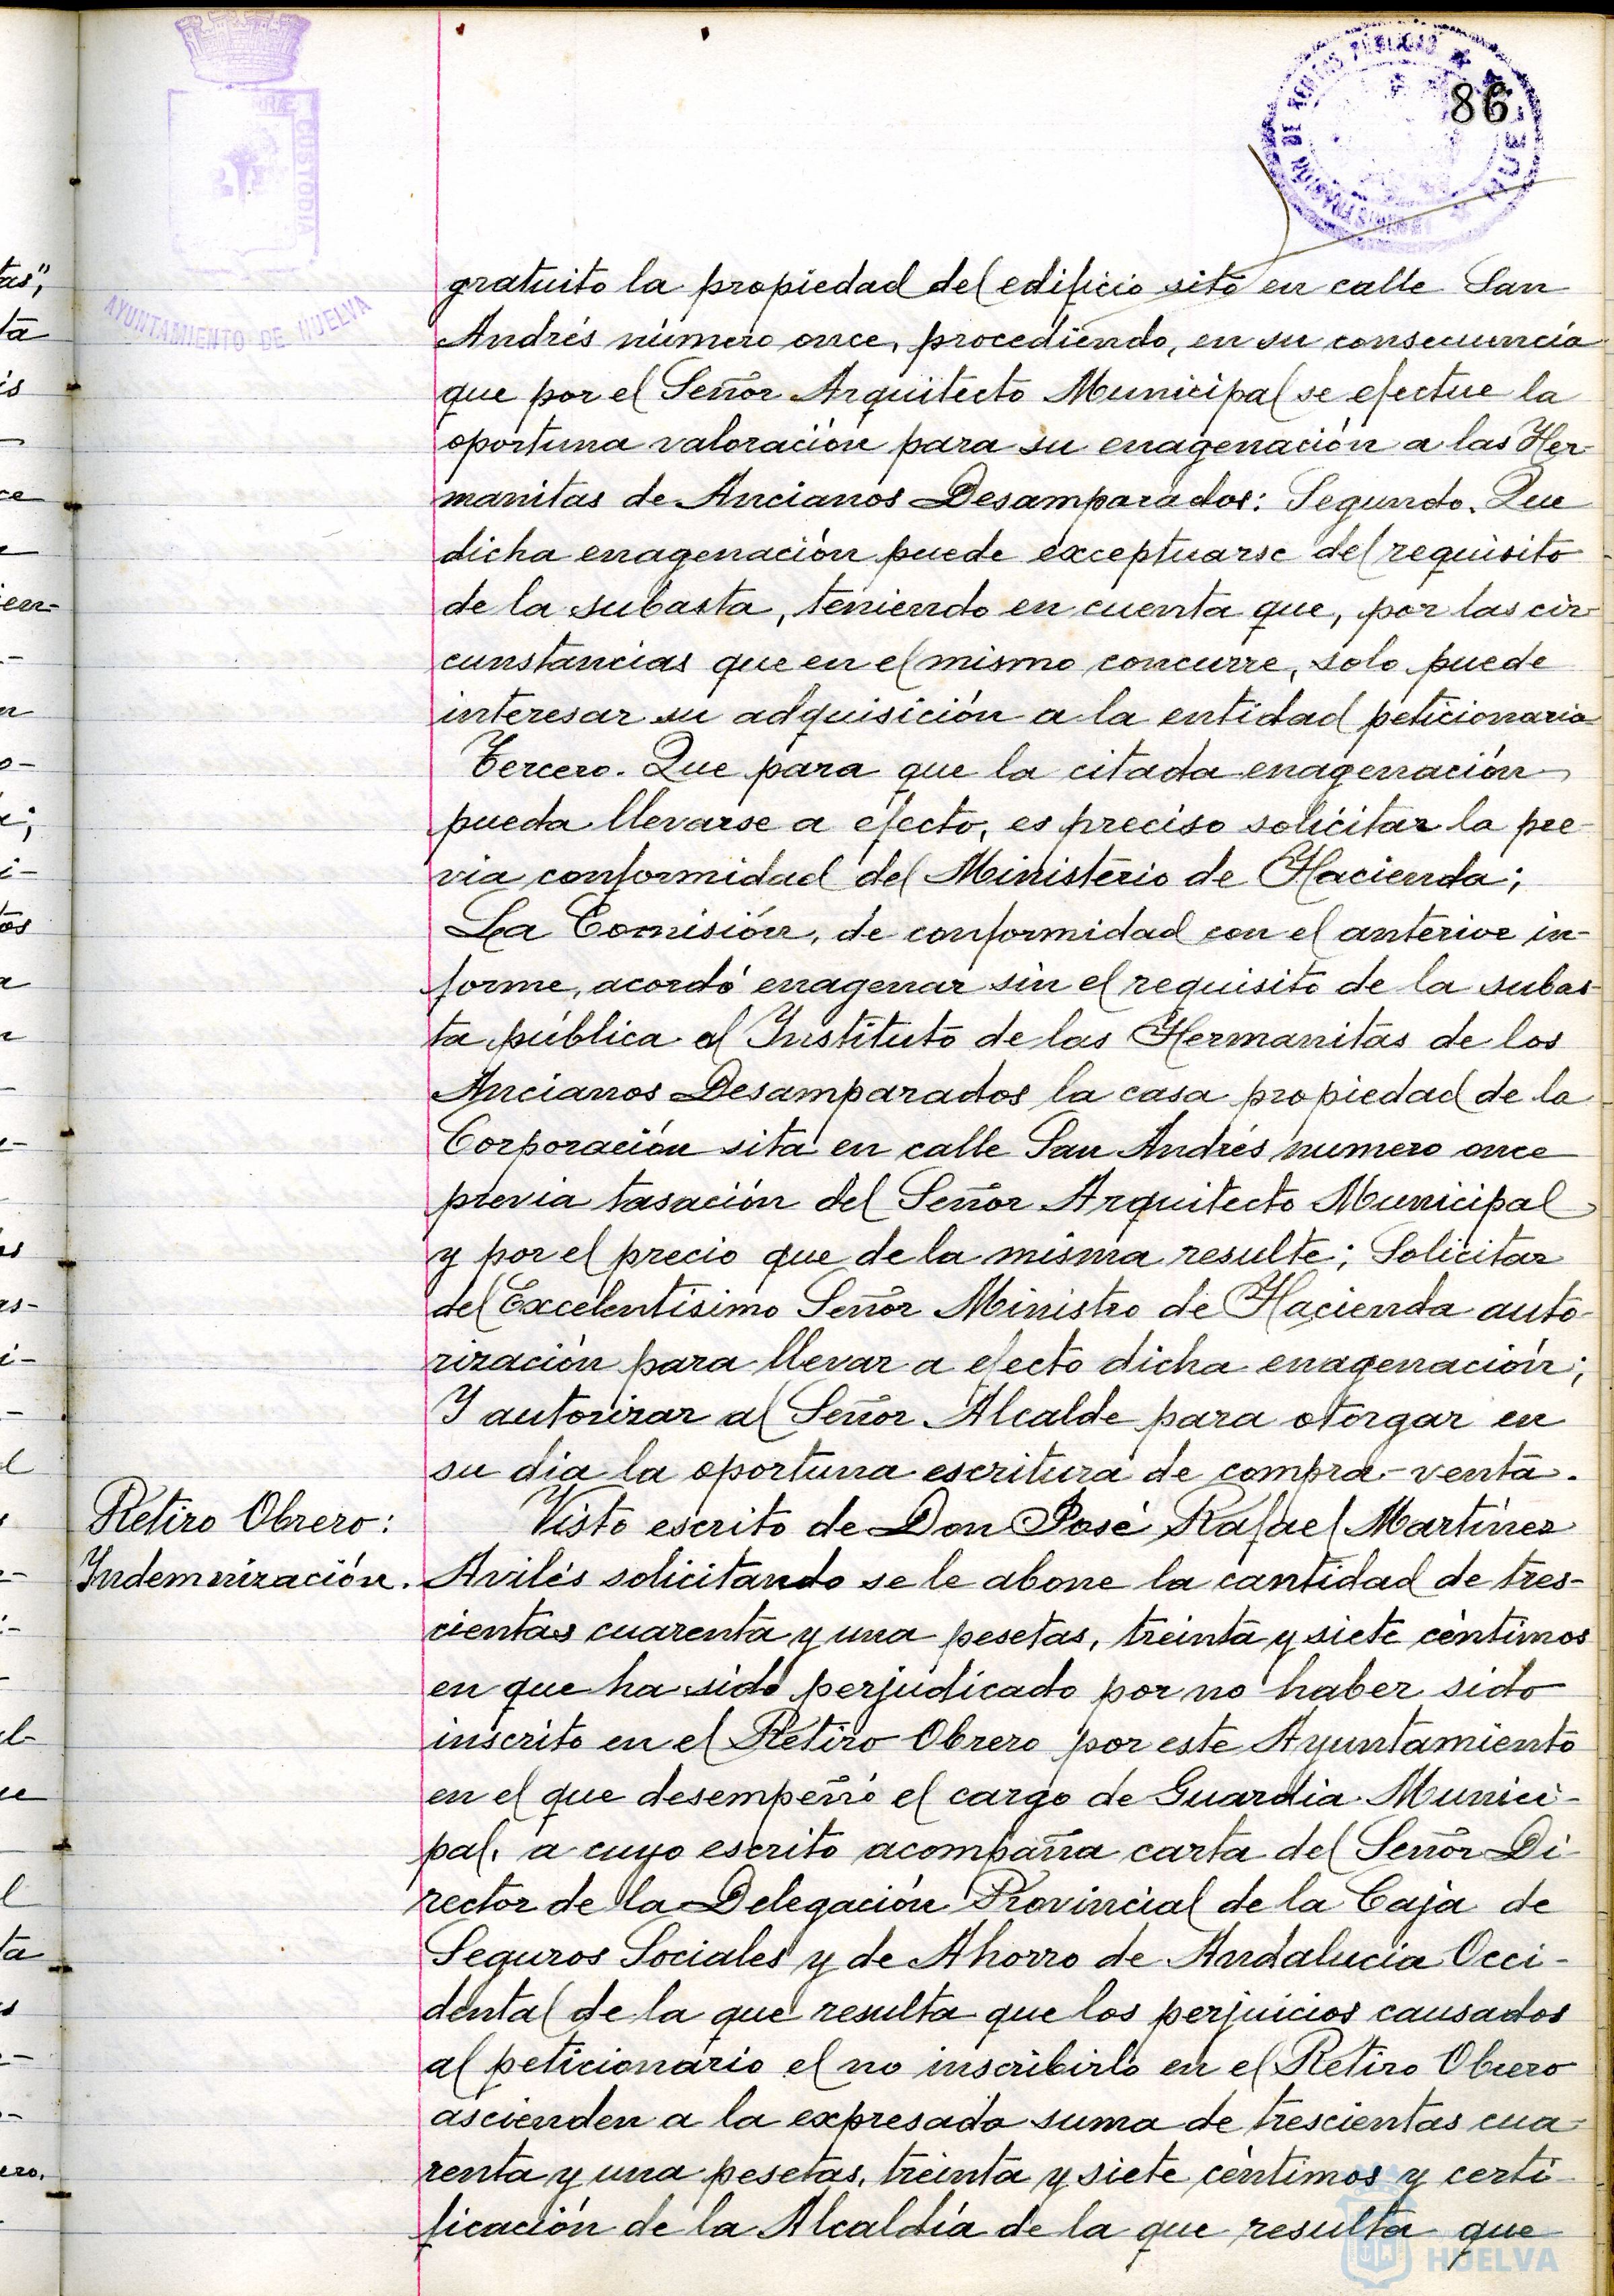 86
AYUNTAMIENTO DE HUELVA
CUSTODIA
gratuito la propiedad del edificio sito en calle San
Andrés número once, procediendo, en su consecuencia
que por el Señor Arquitecto Municipal se efectue la
oportuna valoración para su enagenación a las Her-
manitas de Ancianos Desamparados: Segundo. Que
dicha enagenación puede exceptuarse del requisito
de la subasta, teniendo en cuenta que, por las cir-
cunstancias que en el mismo concurre, solo puede
interesar su adquisición a la entidad peticionaria
Tercero. Que para que la citada enagenación
pueda llevarse a efecto, es preciso solicitar la pre-
via conformidad del Ministerio de Hacienda;
La Comisión, de conformidad con el anterior in-
forme, acordó enagenar sin el requisito de la subas-
ta pública al Instituto de las Hermanitas de los
Ancianos Desamparados la casa propiedad de la
Corporación sita en calle San Andrés numero once
previa tasación del Señor Arquitecto Municipal
y por el precio que de la misma resulte; Solicitar
del Excelentisimo Señor Ministro de Hacienda auto-
rización para llevar a efecto dicha enagenación;
Y autorizar al Señor Alcalde para otorgar en
su dia la oportuna escritura de compra-venta.
Retiro Obrero:
Indemnización.
Visto escrito de Don José Rafael Martínez
Avilés solicitando se le abone la cantidad de tres-
cientas cuarenta y una pesetas, treinta y siete céntimos
en que ha sido perjudicado por no haber sido
inscrito en el Retiro Obrero por este Ayuntamiento
en el que desempeñó el cargo de Guardia Munici-
pal, a cuyo escrito acompaña carta del Señor Di-
rector de la Delegación Provincial de la Caja de
Seguros Sociales y de Ahorro de Andalucia Occi-
dental de la que resulta que los perjuicios causados
al peticionario el no inscribirlo en el Retiro Obrero
ascienden a la expresada suma de trescientas cua-
renta y una pesetas, treinta y siete céntimos y certi-
ficación de la Alcaldía de la que resulta que
HUELVA